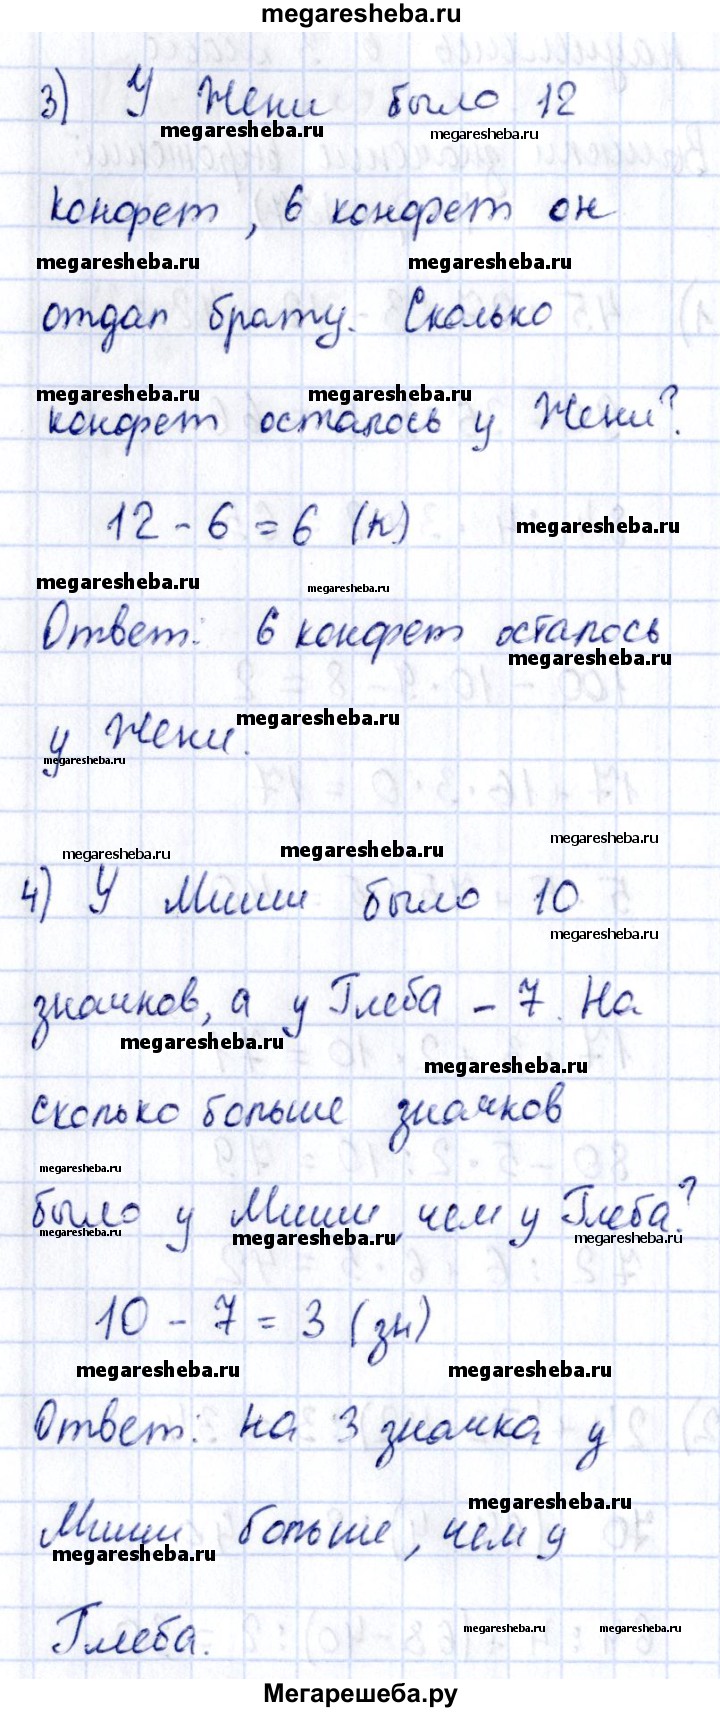 megaresheba.ru
3) У Жени было 12
megaresheba.ru megaresheba.ru
конфет, 6 конфет он
megaresheba.ru megaresheba.ru
отдал брату. Сколько
megaresheba.ru megaresheba.ru
конфет осталось у Жени?
12 - 6 = 6 (к)
megaresheba.ru
megaresheba.ru megaresheba.ru
Ответ: 6 конфет осталось
megaresheba.ru
у Жени.
megaresheba.ru
megaresheba.ru
megaresheba.ru
megaresheba.ru megaresheba.ru
4) У Миши было 10
megaresheba.ru
значков, а у Глеба - 7. На
megaresheba.ru megaresheba.ru
сколько больше значков
megaresheba.ru
было у Миши, чем у Глеба?
megaresheba.ru megaresheba.ru megaresheba.ru
10 - 7 = 3 (зн)
megaresheba.ru megaresheba.ru
Ответ: на 3 значка у
megaresheba.ru
Миши больше, чем у
megaresheba.ru
Глеба.
megaresheba.ru megaresheba.ru
Мегарешеба.ру